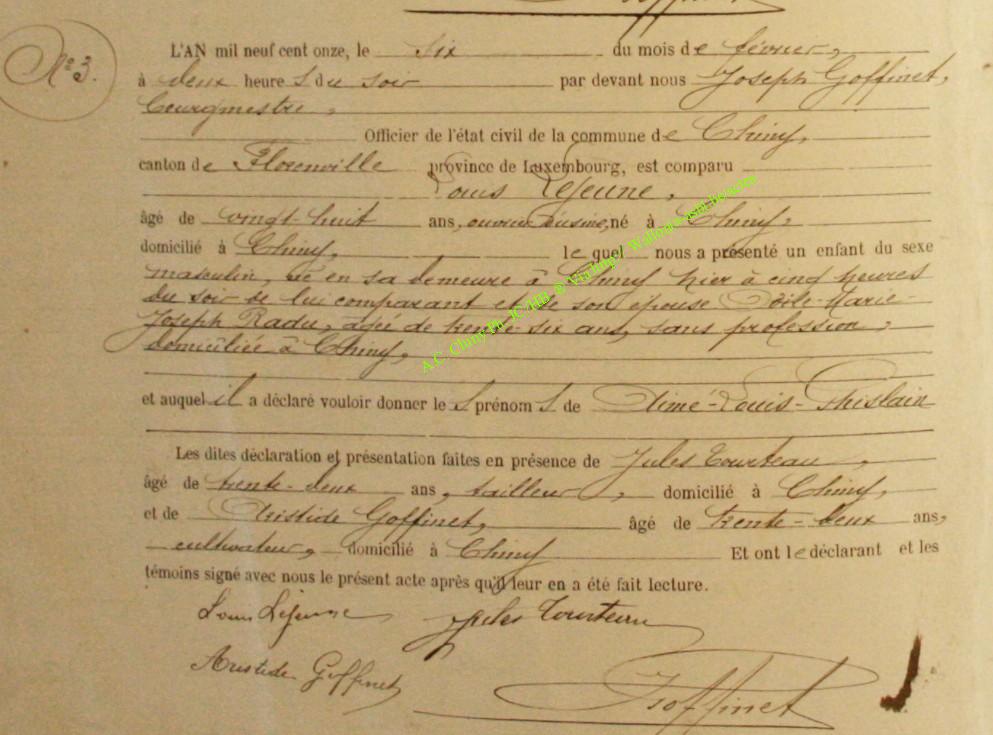 Goffinet
N° 3.
L'AN mil neuf cent onze, le six du mois de février,
à deux heures du soir par devant nous Joseph Goffinet,
bourgmestre,
Officier de l'état civil de la commune de Chiny,
canton de Florenville province de Luxembourg, est comparu
Louis Lejeune,
âgé de vingt-huit ans, ouvrier d'usine, né à Chiny,
domicilié à Chiny, le quel nous a présenté un enfant du sexe
masculin, né en sa demeure à Chiny hier à cinq heures
du soir de lui comparant et de son épouse Odile-Marie
Joseph Radu, âgée de trente-six ans, sans profession,
domiciliée à Chiny,
et auquel il a déclaré vouloir donner les prénoms de Aimé-Louis-Ghislain
Les dites déclaration et présentation faites en présence de Jules Tourteau,
âgé de trente-deux ans, tailleur, domicilié à Chiny,
et de Aristide Goffinet, âgé de trente-deux ans,
cultivateur, domicilié à Chiny Et ont le déclarant et les
témoins signé avec nous le présent acte après qu'il leur en a été fait lecture.
Louis Lejeune Jules Tourteau
Aristide Goffinet
J Goffinet
A.C. Chiny Ph. JC